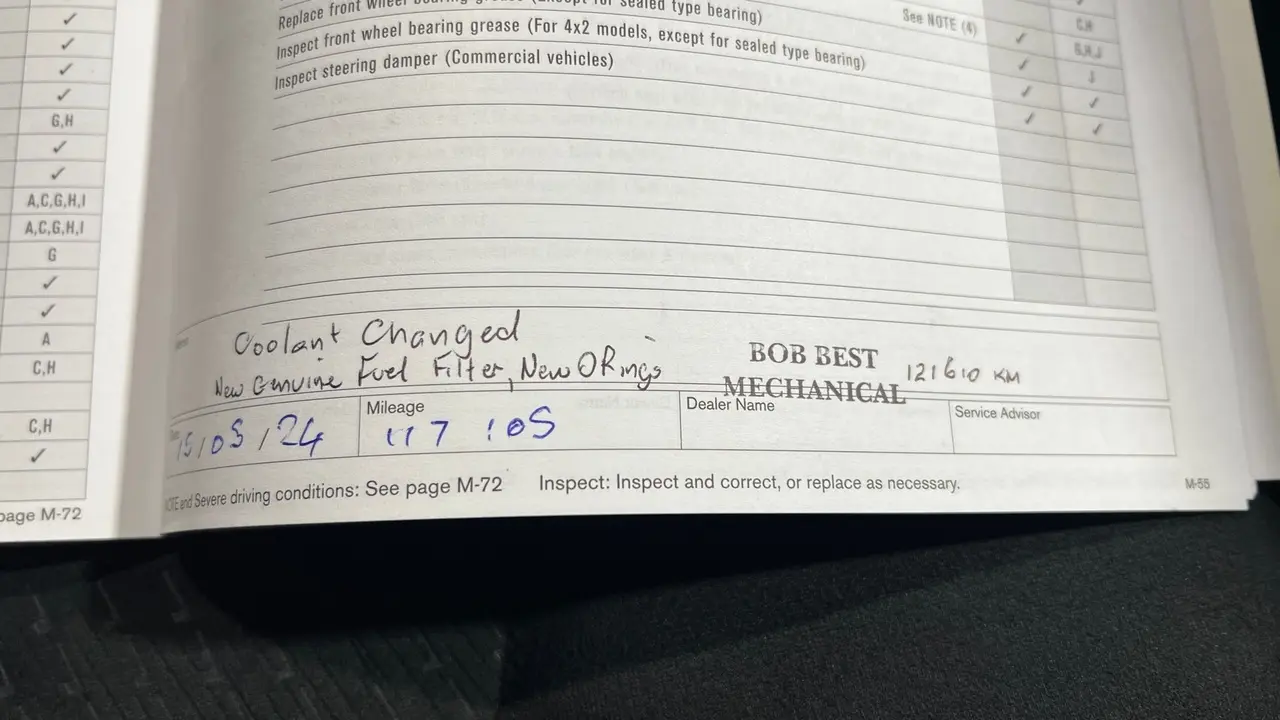 Replace front wheel bearing grease (Except for sealed type bearing) See NOTE (4)
Inspect front wheel bearing grease (For 4x2 models, except for sealed type bearing)
Inspect steering damper (Commercial vehicles)
✓ C,H
✓ G,H,J
✓ J
✓ ✓
✓ ✓
✓
✓
✓
✓
G,H
✓
✓
A,C,G,H,I
A,C,G,H,I
G
✓
✓
A
C,H
C,H
✓
page M-72
Coolant Changed
New Genuine Fuel Filter, New O Rings
BOB BEST
MECHANICAL
121610 KM
15/05/24
Mileage
117 105
Dealer Name
Service Advisor
NOTE and Severe driving conditions: See page M-72
Inspect: Inspect and correct, or replace as necessary.
M-55